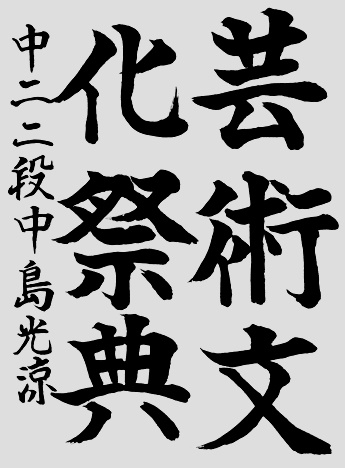 芸術文
化祭典
中二二段中島光涼